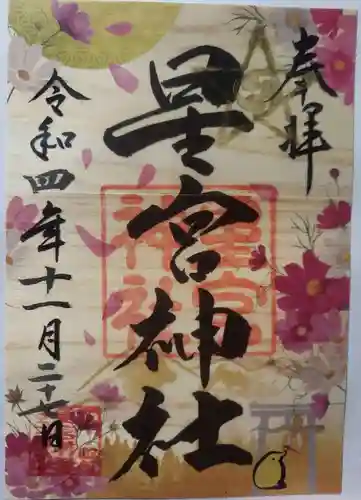 奉拝
星宮神社
星宮神社
令和四年十一月二十七日